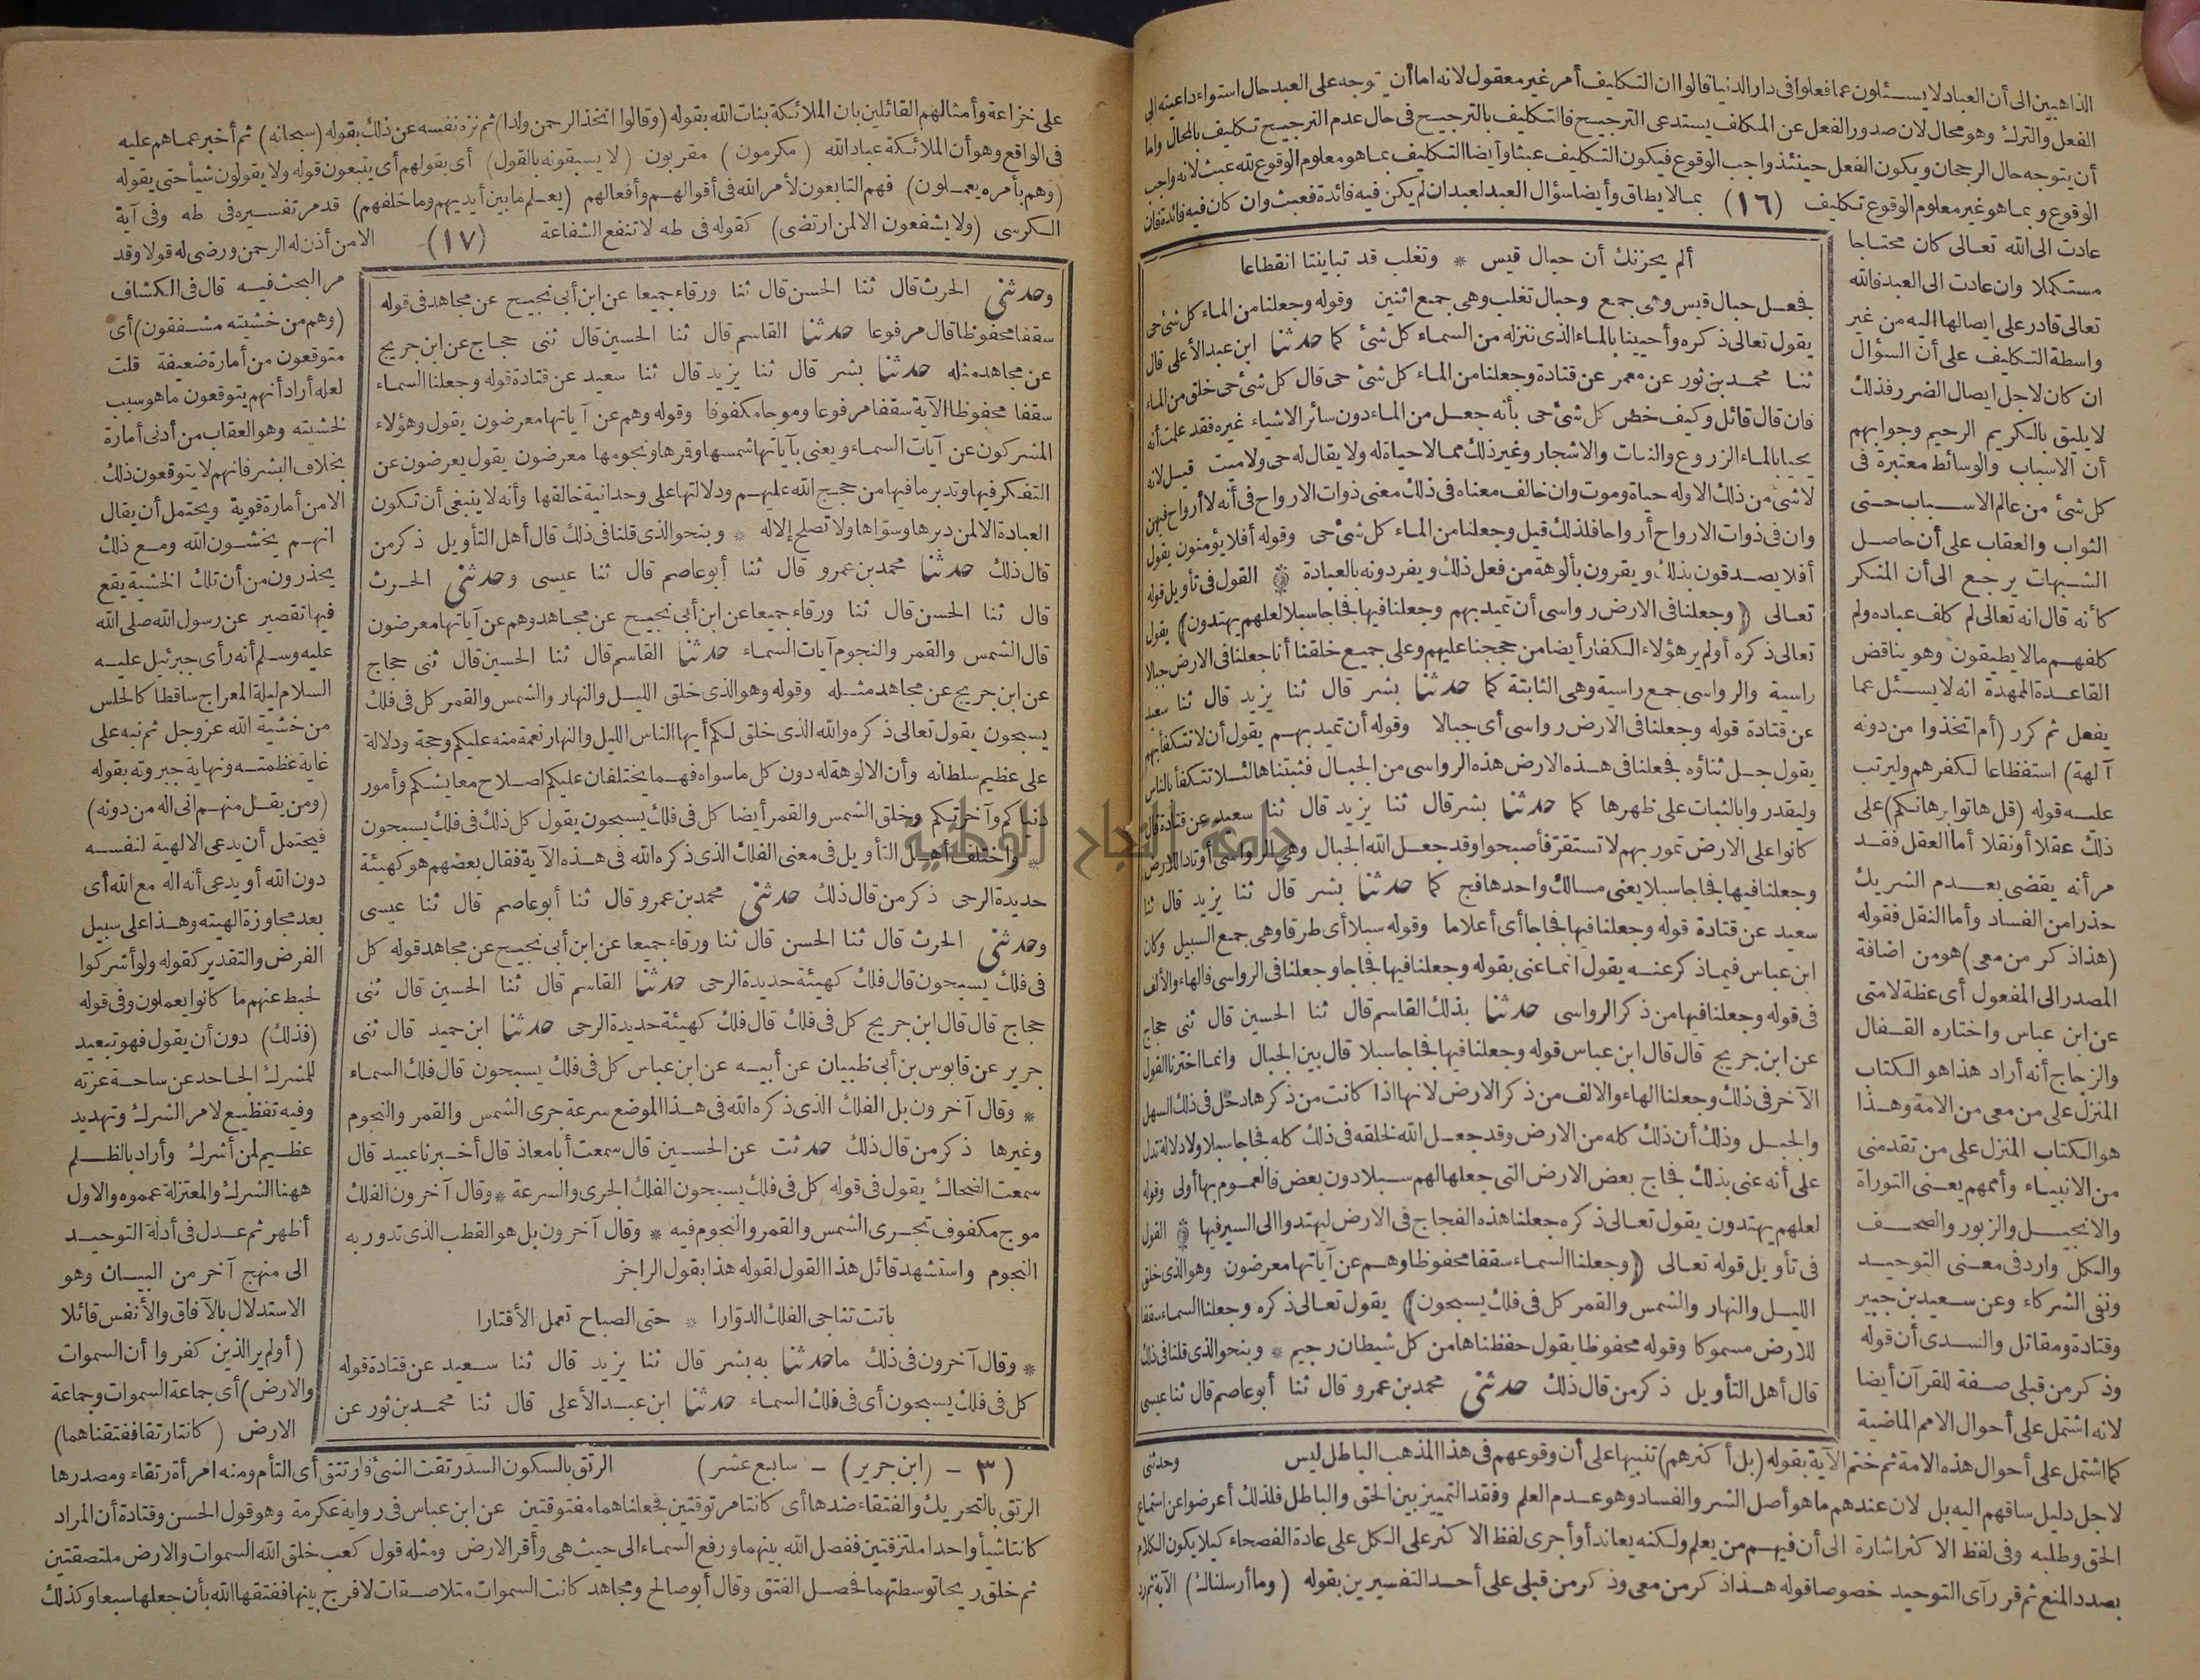 الذاهبين الى أن العباد لا يسئلون عما فعلوا فى دار الدنيا قالوا ان التكليف أمر غير معقول لانه اما أن توجه على العبد حال استواء داعيته الى
الفعل والترك وهو محال لان صدور الفعل عن المكلف يستدعى الترجيح فالتكليف بالترجيح فى حال عدم الترجيح تكليف بالمحال واما
أن يتوجه حال الرجحان ويكون الفعل حينئذ واجب الوقوع فيكون التكليف عبثا وأيضا التكليف بما هو معلوم الوقوع لله عبث لانه واجب
الوقوع وبما هو غير معلوم الوقوع تكليف (١٦) بما لا يطاق وأيضا سؤال العبد لعبد ان لم يكن فيه فائدة فعبث وان كان فيه فائدة فان
عادت الى الله تعالى كان محتاجا
مستكملا وان عادت الى العبد فالله
تعالى قادر على ايصالها اليه من غير
واسطة التكليف على أن السؤال
ان كان لاجل ايصال الضرر فذلك
لا يليق بالكريم الرحيم وجوابهم
أن الاسباب والوسائط معتبرة فى
كل شئ من عالم الاسباب حتى
الثواب والعقاب على أن حاصل
الشبهات يرجع الى أن المنكر
كأنه قال انه تعالى لم كلف عباده ولم
كلفهم ما لا يطيقون وهو يناقض
القاعدة الممهدة انه لا يسئل عما
يفعل ثم كرر (أم اتخذوا من دونه
آلهة) استفظاعا لكفرهم وليرتب
عليه قوله (قل هاتوا برهانكم) على
ذلك عقلا أو نقلا أما العقل فقد
مر أنه يقضى بعدم الشريك
حذرا من الفساد وأما النقل فقوله
(هذا ذكر من معى) هو من اضافة
المصدر الى المفعول أى عظة لامتى
عن ابن عباس واختاره القفال
والزجاج أنه أراد هذا هو الكتاب
المنزل على من معى من الامة وهذا
هو الكتاب المنزل على من تقدمنى
من الانبياء وأممهم يعنى التوراة
والانجيل والزبور والصحف
والكل وارد فى معنى التوحيد
ونفى الشركاء وعن سعيد بن جبير
وقتادة ومقاتل والسدى أن قوله
وذكر من قبلى صفة للقرآن أيضا
لانه اشتمل على أحوال الامم الماضية
ألم يحزنك أن حبال قيس * وتغلب قد تباينتا انقطاعا
فجعل حبال قيس وهى جمع وحبال تغلب وهى جمع اثنين وقوله وجعلنا من الماء كل شئ حى
يقول تعالى ذكره وأحيينا بالماء الذى ننزله من السماء كل شئ كما حدثنا ابن عبد الأعلى قال
ثنا محمد بن ثور عن معمر عن قتادة وجعلنا من الماء كل شئ حى قال كل شئ حى خلق من الماء
فان قال قائل وكيف خص كل شئ حى بأنه جعل من الماء دون سائر الاشياء غيره فقد علمت أنه
يحيا بالماء الزروع والنبات والاشجار وغير ذلك مما لا حياة له ولا يقال له حى ولا ميت قيل لانه
لا شئ من ذلك الا وله حياة وموت وان خالف معناه فى ذلك معنى ذوات الارواح فى أنه لا أرواح فيهن
وان فى ذوات الارواح أرواحا فلذلك قيل وجعلنا من الماء كل شئ حى وقوله أفلا يؤمنون يقول
أفلا يصدقون بذلك ويقرون بألوهة من فعل ذلك ويفردونه بالعبادة القول فى تأويل قوله
تعالى (وجعلنا فى الارض رواسى أن تميد بهم وجعلنا فيها فجاجا سبلا لعلهم يهتدون) يقول
تعالى ذكره أولم ير هؤلاء الكفار أيضا من حججنا عليهم وعلى جميع خلقنا أنا جعلنا فى الارض جبالا
راسية والرواسى جمع راسية وهى الثابتة كما حدثنا بشر قال ثنا يزيد قال ثنا سعيد
عن قتادة قوله وجعلنا فى الارض رواسى أى جبالا وقوله أن تميد بهم يقول أن لا تتكفأ بهم
يقول جل ثناؤه فجعلنا فى هذه الارض هذه الرواسى من الجبال فثبتناها لئلا تتكفأ بالناس
وليقدروا بالثبات على ظهرها كما حدثنا بشر قال ثنا يزيد قال ثنا سعيد عن قتادة قال
كانوا على الارض تمور بهم لا تستقر فأصبحوا وقد جعل الله الجبال وهى الرواسى أوتادا للارض
وجعلنا فيها فجاجا سبلا يعنى مسالك واحدها فج كما حدثنا بشر قال ثنا يزيد قال ثنا
سعيد عن قتادة قوله وجعلنا فيها فجاجا أى أعلاما وقوله سبلا أى طرقا وهى جمع السبيل وكان
ابن عباس فيما ذكر عنه يقول انما عنى بقوله وجعلنا فيها فجاجا وجعلنا فى الرواسى فالهاء والألف
فى قوله وجعلنا فيها من ذكر الرواسى حدثنا بذلك القاسم قال ثنا الحسين قال ثنى حجاج
عن ابن جريج قال قال ابن عباس قوله وجعلنا فيها فجاجا سبلا قال بين الجبال وانما اخترنا القول
الآخر فى ذلك وجعلنا الهاء والالف من ذكر الارض لانها اذا كانت من ذكرها دخل فى ذلك السهل
والجبل وذلك أن ذلك كله من الارض وقد جعل الله لخلقه فى ذلك كله فجاجا سبلا ولا دلالة تدل
على أنه عنى بذلك فجاج بعض الارض التى جعلها لهم سبلا دون بعض فالعموم بها أولى وقوله
لعلهم يهتدون يقول تعالى ذكره جعلنا هذه الفجاج فى الارض ليهتدوا الى السير فيها القول
فى تأويل قوله تعالى (وجعلنا السماء سقفا محفوظا وهم عن آياتها معرضون وهو الذى خلق
الليل والنهار والشمس والقمر كل فى فلك يسبحون) يقول تعالى ذكره وجعلنا السماء سقفا
للارض مسموكا وقوله محفوظا يقول حفظناها من كل شيطان رجيم * وبنحو الذى قلنا فى ذلك
قال أهل التأويل ذكر من قال ذلك حدثنى محمد بن عمرو قال ثنا أبو عاصم قال ثنا عيسى
كما اشتمل على أحوال هذه الامة ثم ختم الآية بقوله (بل أكثرهم) تنبيها على أن وقوعهم فى هذا المذهب الباطل ليس وحدثنى
لاجل دليل ساقهم اليه بل لان عندهم ما هو أصل الشر والفساد وهو عدم العلم وفقد التمييز بين الحق والباطل فلذلك أعرضوا عن استماع
الحق وطلبه وفى لفظ الاكثر اشارة الى أن فيهم من يعلم ولكنه يعاند أو أجرى لفظ الاكثر على الكل على عادة الفصحاء كيلا يكون الكلام
بصدد المنع ثم قرر آى التوحيد خصوصا قوله هذا ذكر من معى وذكر من قبلى على أحد التفسيرين بقوله (وما أرسلناك) الآية ثم رد
على خزاعة وأمثالهم القائلين بان الملائكة بنات الله بقوله (وقالوا اتخذ الرحمن ولدا) ثم نزه نفسه عن ذلك بقوله (سبحانه) ثم أخبر عما هم عليه
فى الواقع وهو أن الملائكة عباد الله (مكرمون) مقربون (لا يسبقونه بالقول) أى بقولهم أى يتبعون قوله ولا يقولون شيأ حتى يقوله
(وهم بأمره يعملون) فهم التابعون لأمر الله فى أقوالهم وأفعالهم (يعلم ما بين أيديهم وما خلفهم) قد مر تفسيره فى طه وفى آية
الكرسى (ولا يشفعون الا لمن ارتضى) كقوله فى طه لا تنفع الشفاعة (١٧) الا من أذن له الرحمن ورضى له قولا وقد
وحدثنى الحرث قال ثنا الحسن قال ثنا ورقاء جميعا عن ابن أبى نجيح عن مجاهد فى قوله
سقفا محفوظا قال مرفوعا حدثنا القاسم قال ثنا الحسين قال ثنى حجاج عن ابن جريج
عن مجاهد مثله حدثنا بشر قال ثنا يزيد قال ثنا سعيد عن قتادة قوله وجعلنا السماء
سقفا محفوظا الآية سقفا مرفوعا وموجا مكفوفا وقوله وهم عن آياتها معرضون يقول وهؤلاء
المشركون عن آيات السماء ويعنى بآياتها شمسها وقمرها ونجومها معرضون يقول يعرضون عن
التفكر فيها وتدبر ما فيها من حجج الله عليهم ودلالتها على وحدانية خالقها وأنه لا ينبغى أن تكون
العبادة الا لمن دبرها وسواها ولا تصلح إلا له * وبنحو الذى قلنا فى ذلك قال أهل التأويل ذكر من
قال ذلك حدثنا محمد بن عمرو قال ثنا أبو عاصم قال ثنا عيسى وحدثنى الحرث
قال ثنا الحسن قال ثنا ورقاء جميعا عن ابن أبى نجيح عن مجاهد وهم عن آياتها معرضون
قال الشمس والقمر والنجوم آيات السماء حدثنا القاسم قال ثنا الحسين قال ثنى حجاج
عن ابن جريج عن مجاهد مثله وقوله وهو الذى خلق الليل والنهار والشمس والقمر كل فى فلك
يسبحون يقول تعالى ذكره والله الذى خلق لكم أيها الناس الليل والنهار نعمة منه عليكم وحجة ودلالة
على عظيم سلطانه وأن الالوهة له دون كل ما سواه فهما يختلفان عليكم لصلاح معايشكم وأمور
دنياكم وآخرتكم وخلق الشمس والقمر أيضا كل فى فلك يسبحون يقول كل ذلك فى فلك يسبحون
* واختلف أهل التأويل فى معنى الفلك الذى ذكره الله فى هذه الآية فقال بعضهم هو كهيئة
حديدة الرحى ذكر من قال ذلك حدثنى محمد بن عمرو قال ثنا أبو عاصم قال ثنا عيسى
وحدثنى الحرث قال ثنا الحسن قال ثنا ورقاء جميعا عن ابن أبى نجيح عن مجاهد قوله كل
فى فلك يسبحون قال فلك كهيئة حديدة الرحى حدثنا القاسم قال ثنا الحسين قال ثنى
حجاج قال قال ابن جريج كل فى فلك قال فلك كهيئة حديدة الرحى حدثنا ابن حميد قال ثنى
جرير عن قابوس بن أبى ظبيان عن أبيه عن ابن عباس كل فى فلك يسبحون قال فلك السماء
* وقال آخرون بل الفلك الذى ذكره الله فى هذا الموضع سرعة جرى الشمس والقمر والنجوم
وغيرها ذكر من قال ذلك حدثت عن الحسين قال سمعت أبا معاذ قال أخبرنا عبيد قال
سمعت الضحاك يقول فى قوله كل فى فلك يسبحون الفلك الجرى والسرعة * وقال آخرون الفلك
موج مكفوف تجرى الشمس والقمر والنجوم فيه * وقال آخرون بل هو القطب الذى تدور به
النجوم واستشهد قائل هذا القول لقوله هذا بقول الراجز
باتت تناجى الفلك الدوارا * حتى الصباح تعمل الأقتارا
* وقال آخرون فى ذلك ما حدثنا به بشر قال ثنا يزيد قال ثنا سعيد عن قتادة قوله
كل فى فلك يسبحون أى فى فلك السماء حدثنا ابن عبد الأعلى قال ثنا محمد بن ثور عن
مر البحث فيه قال فى الكشاف
(وهم من خشيته مشفقون) أى
متوقعون من أمارة ضعيفة قلت
لعله أراد أنهم يتوقعون ما هو سبب
لخشيته وهو العقاب من أدنى أمارة
بخلاف البشر فانهم لا يتوقعون ذلك
الا من أمارة قوية ويحتمل أن يقال
انهم يخشون الله ومع ذلك
يحذرون من أن تلك الخشية يقع
فيها تقصير عن رسول الله صلى الله
عليه وسلم أنه رأى جبرئيل عليه
السلام ليلة المعراج ساقطا كالحلس
من خشية الله عز وجل ثم نبه على
غاية عظمته ونهاية جبروته بقوله
(ومن يقل منهم انى اله من دونه)
فيحتمل أن يدعى الالهية لنفسه
دون الله أو يدعى أنه اله مع الله أى
بعد مجاوزة الهيته وهذا على سبيل
الفرض والتقدير كقوله ولو أشركوا
لحبط عنهم ما كانوا يعملون وفى قوله
(فذلك) دون أن يقول فهو تبعيد
للمشرك الجاحد عن ساحة عزته
وفيه تفظيع لامر الشرك وتهديد
عظيم لمن أشرك وأراد بالظلم
ههنا الشرك والمعتزلة عمموه والاول
أظهر ثم عدل فى أدلة التوحيد
الى منهج آخر من البيان وهو
الاستدلال بالآفاق والأنفس قائلا
(أولم ير الذين كفروا أن السموات
والارض) أى جماعة السموات وجماعة
الارض (كانتا رتقا ففتقناهما)
(٣ - (ابن جرير) - سابع عشر) الرتق بالسكون السد رتقت الشئ فارتتق أى التأم ومنه امرأة رتقاء ومصدرها
الرتق بالتحريك والفتقاء ضدها أى كانتا مرتوقتين فجعلناهما مفتوقتين عن ابن عباس فى رواية عكرمة وهو قول الحسن وقتادة أن المراد
كانتا شيأ واحدا ملتزقتين ففصل الله بينهما ورفع السماء الى حيث هى وأقر الارض ومثله قول كعب خلق الله السموات والارض ملتصقتين
ثم خلق ريحا توسطتهما فحصل الفتق وقال أبو صالح ومجاهد كانت السموات متلاصقات لا فرج بينها ففتقها الله بأن جعلها سبعا وكذلك
جامعة النجاح الوطنية